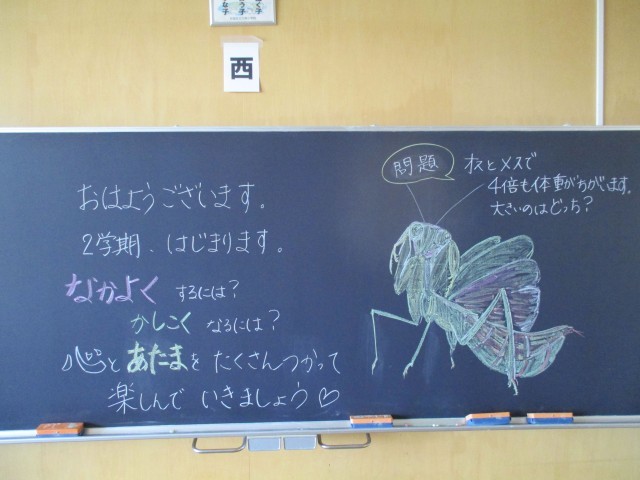 西
おはようございます。
2学期、はじまります。
なかよく するには？
かしこく なるには？
心と あたまを たくさんつかって
楽しんで いきましょう♡
問題
オスとメスで
4倍も体重がちがいます。
大きいのはどっち？